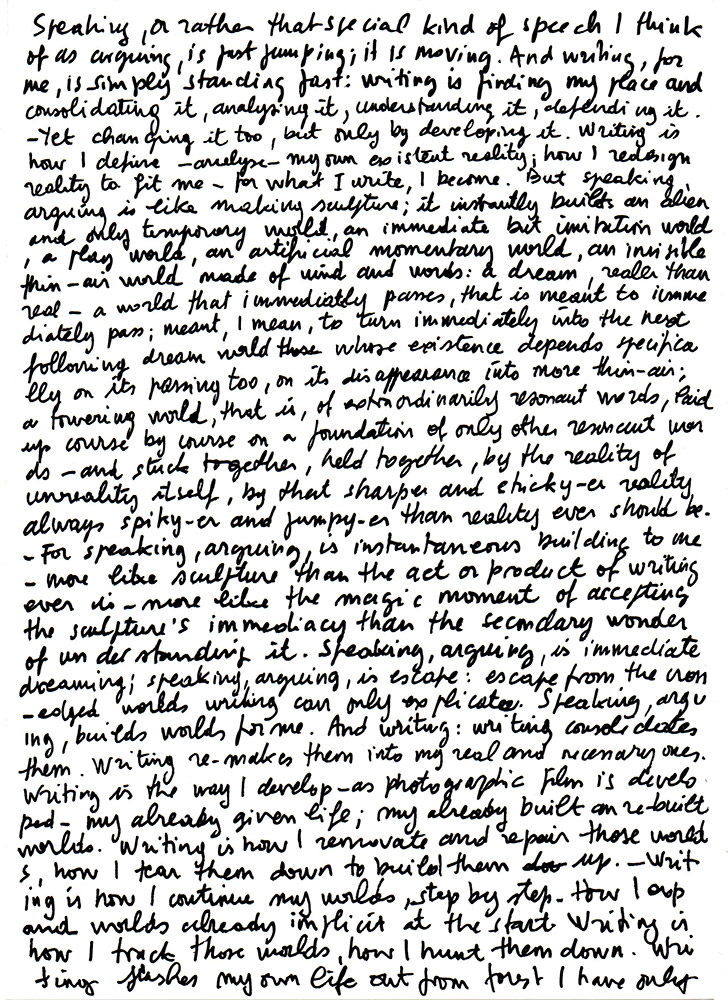 Speaking, or rather that special kind of speech I think
of as arguing, is just jumping; it is moving. And writing, for
me, is simply standing fast: writing is finding my place and
consolidating it, analysing it, understanding it, defending it.
-Yet changing it too, but only by developing it. Writing is
how I define -analyse- my own existent reality; how I redesign
reality to fit me - for what I write, I become. But speaking,
arguing is like making sculpture; it instantly builds an alien
and only temporary world, an immediate but imitation world
, a play world, an artificial momentary world, an invisible
thin-air world made of wind and words: a dream, realer than
real - a world that immediately passes, that is meant to imme
diately pass; meant, I mean, to turn immediately into the next
following dream world whose existence depends specifica
lly on its passing too, on its disappearance into more thin-air;
a towering world, that is, of extraordinarily resonant words, laid
up course by course on a foundation of only other resonant wor
ds - and stuck together, held together, by the reality of
unreality itself, by that sharper and sticky-er reality
always spiky-er and jumpy-er than reality ever should be.
- For speaking, arguing, is instantaneous building to me
- more like sculpture than the act or product of writing
ever is - more like the magic moment of accepting
the sculpture's immediacy than the secondary wonder
of understanding it. Speaking, arguing, is immediate
dreaming; speaking, arguing, is escape: escape from the iron
-edged worlds writing can only explicate. Speaking, argu
ing, builds worlds for me. And writing: writing consolidates
them. Writing re-makes them into my real and necessary ones.
Writing is the way I develop - as photographic film is develo
ped - my already given life; my already built an re-built
worlds. Writing is how I rennovate and repair those world
s, how I tear them down to build them up. -Writ
ing is how I continue my worlds, step by step. How I exp
and worlds already implicit at the start. Writing is
how I track those worlds, how I hunt them down. Wri
ting flashes my own life out from forest I have only